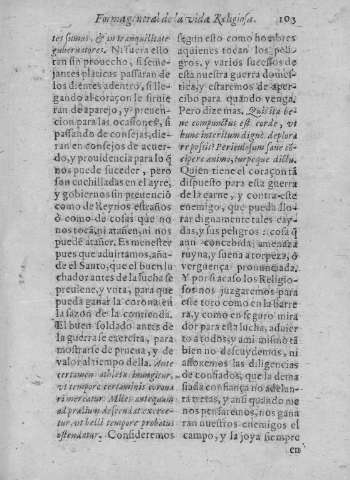 Forma general de la vida Religiosa. 103
tes sumus, & in tranquillitate
gubernatores. Ni fuera esto
tan sin prouecho, si seme-
jantes platicas passaran de
los dientes adentro, si lle-
gando al coraçon le siruie
ran de aparejo, y preuen-
cion para las ocasiones, si
passando de consejas, die-
ran en consejos de acuer-
do, y prouidencia para lo q̃
nos puede suceder, pero
son cuchilladas en el ayre,
y gobiernos sin preuenció
como de Reynos estraños
ò como de cosas que no
nos tocã, ni atañen, ni nos
puedē atañer. Es menester
pues que aduirtamos, aña-
de el Santo, que el buen lu
chador antes de la lucha se
preuiene, y vnta, para que
pueda ganar la corona en
la sazon de la contienda.
El buen soldado antes de
la guerra se exercita, para
mostrarse de prueua, y de
valor al tiempo della. Ante
certamen athleta inungitur,
vt tempore certaminis corona
ri mereatur. Miles antequam
ad prælium descendat exerce-
tur, vt belli tempore probatus
ostendatur. Consideremos
segun esto como hombres
a quienes tocan los peli-
gros, y varios sucessos de
esta nuestra guerra domes-
tica, y estaremos de aper-
cibo para quando venga.
Pero dize mas. Quis ita be-
ne compunctus est corde, vt
hunc interitum dignè deplora
re possit? Periculosum sane cō-
cipere animo, turpeque dictu.
Quien tiene el coraçon tã
dispuesto para esta guerra
de la carne, y contra este
enemigo, que pueda llo-
rar dignamente tales cay-
das, y sus peligros: cosa q̃
aun concebida, amenaza
ruyna, y suena a torpeza, ò
verguença pronunciada.
Y por si acaso los Religio-
sos nos juzgaremos para
este toro como en la barre
ra, y como en seguro mira
dor para esta lucha, aduier
to a todos, y a mi mismo tã
bien no descuydemos, ni
afloxemos las diligencias
de confiados, que la dema
siada confiança no adelan-
ta tretas, y ansi quando me
nos pensaremos, nos gana
ran nuestros enemigos el
campo, y la joya siempre
en